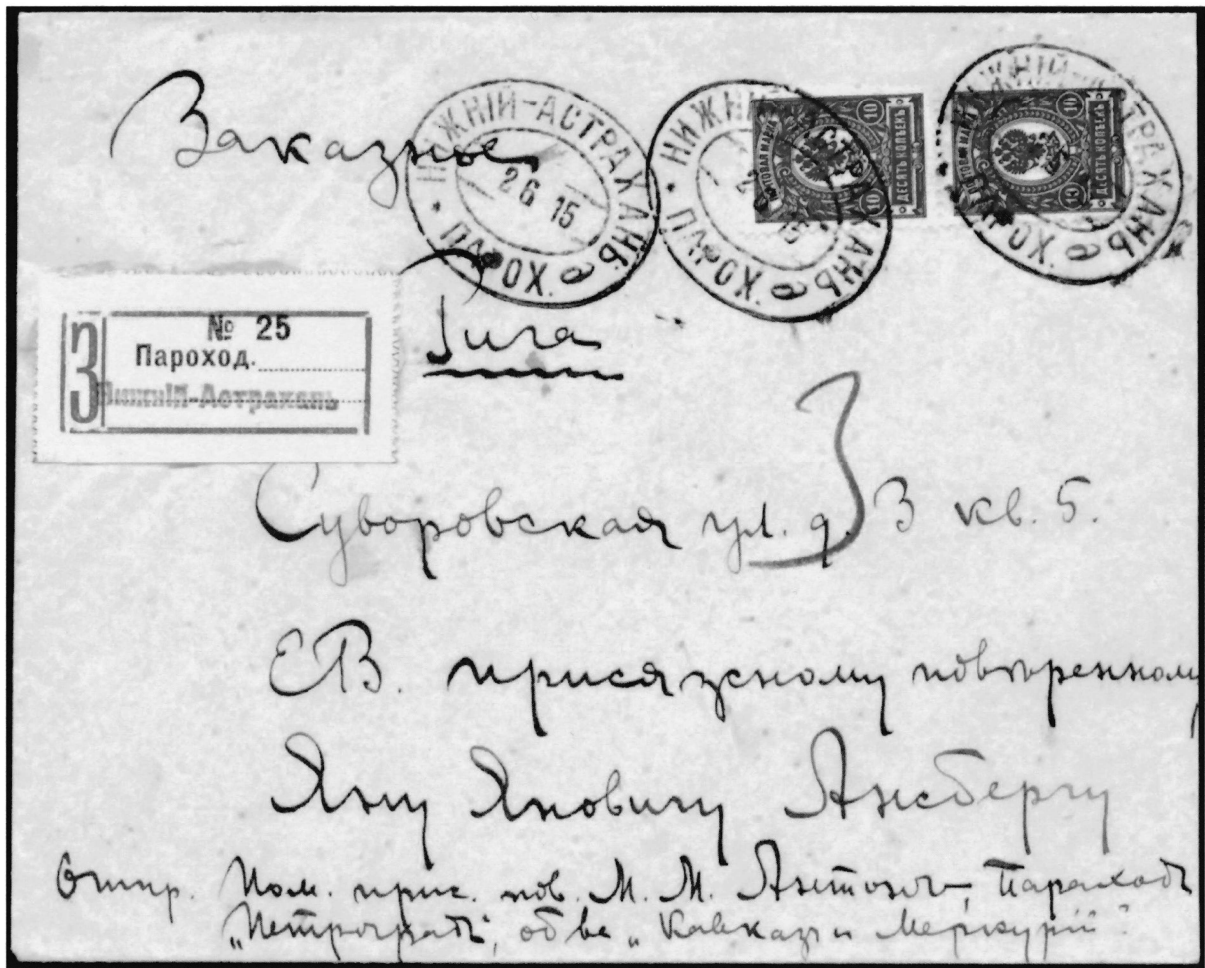 Заказное
НИЖНІЙ-АСТРАХАНЬ
2 6 15
* ПАРОХ. а
НИЖНІЙ-АСТРАХАНЬ
* ПАРОХ. а
НИЖНІЙ-АСТРАХАНЬ
ПАРОХ. а
10 10
ПОЧТОВАЯ МАРКА
ДЕСЯТЬ КОПѢЕКЪ
10 10
ПОЧТОВАЯ МАРКА
ДЕСЯТЬ КОПѢЕКЪ
Рига
З
№ 25
Пароход.
Нижній-Астрахань
3
Суворовская ул. д. 3 кв. 5.
ЕВ. присяжному повѣренному
Яну Яновичу Ансбергу
Отпр. Пом. прис. пов. М. М. Антоновъ, Пароходъ
„Петроградъ", об-ва „Кавказъ и Меркурій"